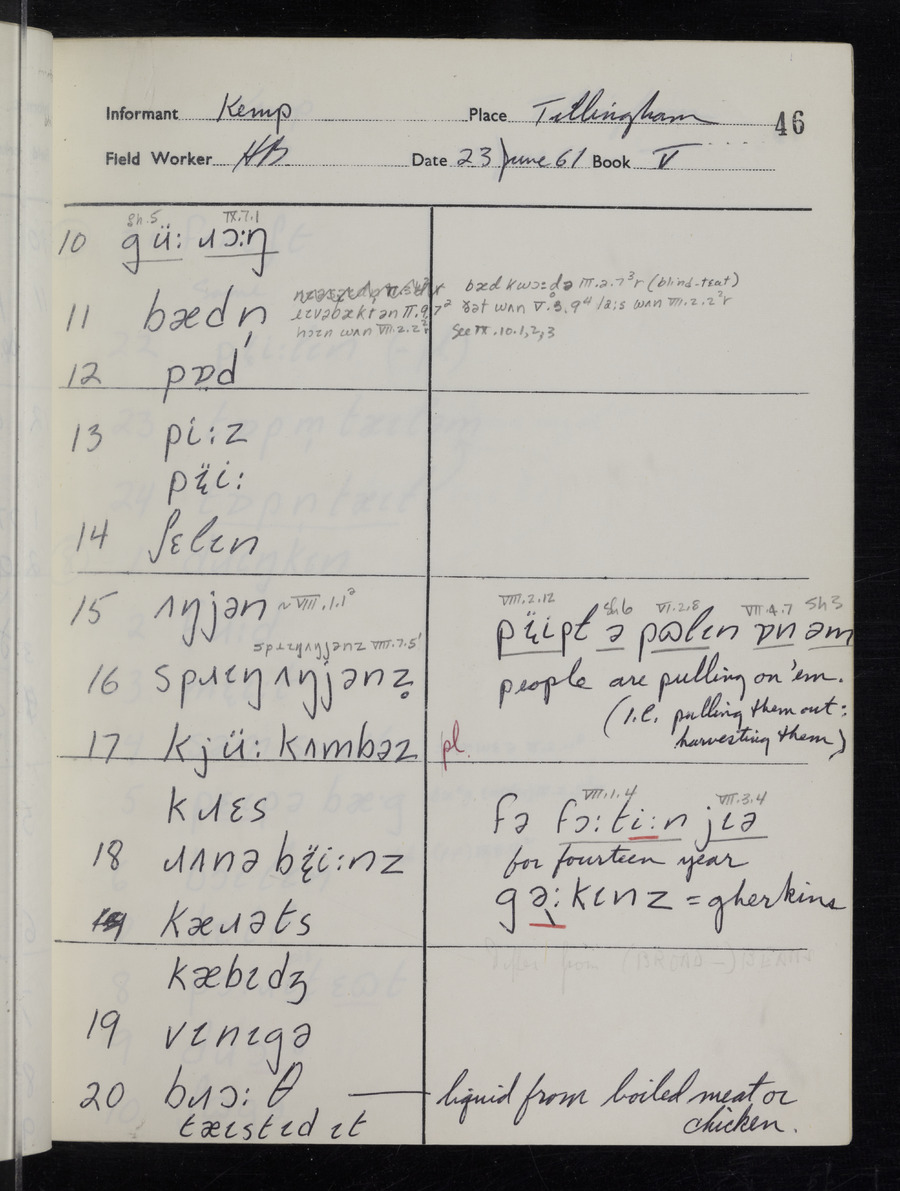 Informant Kemp Place Tillingham 46
Field Worker HB Date 23 June 61 Book V
Sh.5 IX.7.1
10 gü: ɹɔ:ŋ
11 bædn̩
bæd kwɔ:də III.2.7³r (blind-teat)
ɪɛvəbæktən II.9.7² ðət wʌn V.8.9⁴ la:s wʌn VII.2.2²r
hɔɪn wʌn VII.2.2²r See IX.10.1,2,3
12 pɒd
13 pi:z
pɪ̈i:
14 ʃɛlɪn
15 ʌŋjən ~VIII.1.1²
VIII.2.12 Sh6 VI.2.8 VII.4.7 Sh3
pɪ̈ipɫ ə pɷlɪn ɒn əm
spɹɪŋʌŋjənz VIII.7.5'
16 spɹɪŋ ʌŋjənz̥
people are pulling on 'em.
(i.e. pulling them out:
harvesting them)
17 kjü: kʌmbəz pl.
kɹɛs
VII.1.4 VII.3.4
fə fɔ:ti:n jɪə
18 ɹʌnə bɪ̈i:nz
for fourteen year
gə:kɪnz = gherkins
kæɹəts
kæbɪdʒ
19 vɪnɪgə
20 bɹɔ:θ — liquid from boiled meat or
chicken.
tæɪstɪd ɪt